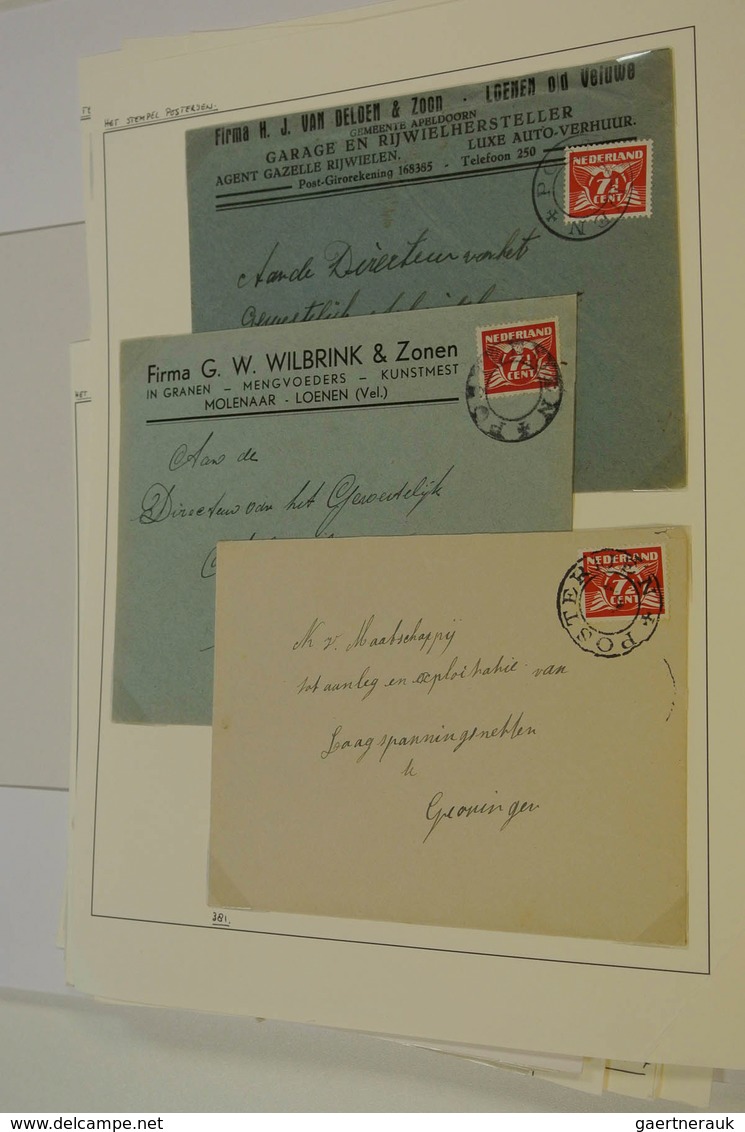 HET STEMPEL POSTERIJEN.
Firma H. J. VAN DELDEN & ZOON - LOENEN o/d Veluwe
GEMEENTE APELDOORN
GARAGE EN RIJWIELHERSTELLER
AGENT GAZELLE RIJWIELEN. LUXE AUTO-VERHUUR.
Post-Girorekening 168385 - Telefoon 250
NEDERLAND
7½
CENT
Aan de Directeur van het
Gewestelijk
Firma G. W. WILBRINK & Zonen
IN GRANEN - MENGVOEDERS - KUNSTMEST
MOLENAAR - LOENEN (Vel.)
NEDERLAND
7½
CENT
Aan de
Directeur van het Gewestelijk
NEDERLAND
7½
CENT
N.v. Maatschappij
tot aanleg en exploitatie van
Laagspanningsnetten
te
Groningen
381.
Delcampe.net
gaertnerauk